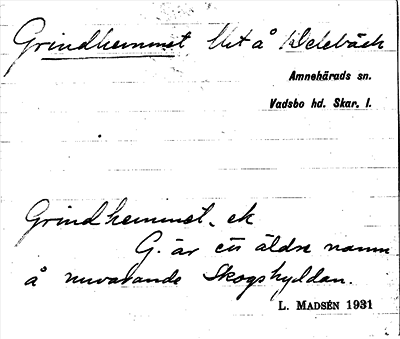 Grindhemmet, llht å Delebäck
Amnehärads sn.
Vadsbo hd. Skar. l.
Grindhemmet, ek
G. är ett äldre namn
å nuvarande Skogshyddan.
L. MADSÉN 1931